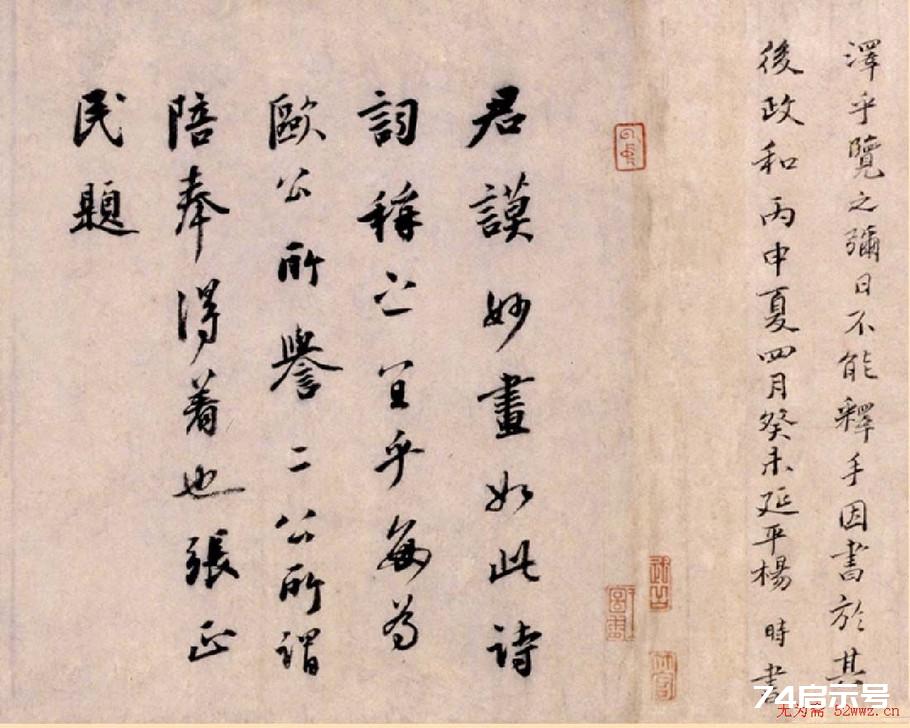 澤乎覽之彌日不能釋手因書於其
後政和丙申夏四月癸未延平楊時書
君謨妙畫如此詩
詞稱之宜乎每為
歐公所譽二公所謂
陪奉得着也張正
民題
74启示号
无为斋 52wwz.cn